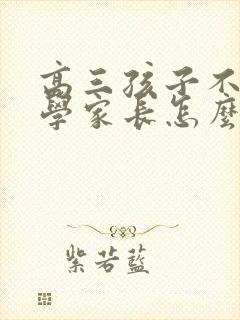 高三孩子不
學家長怎麼
紫若藍